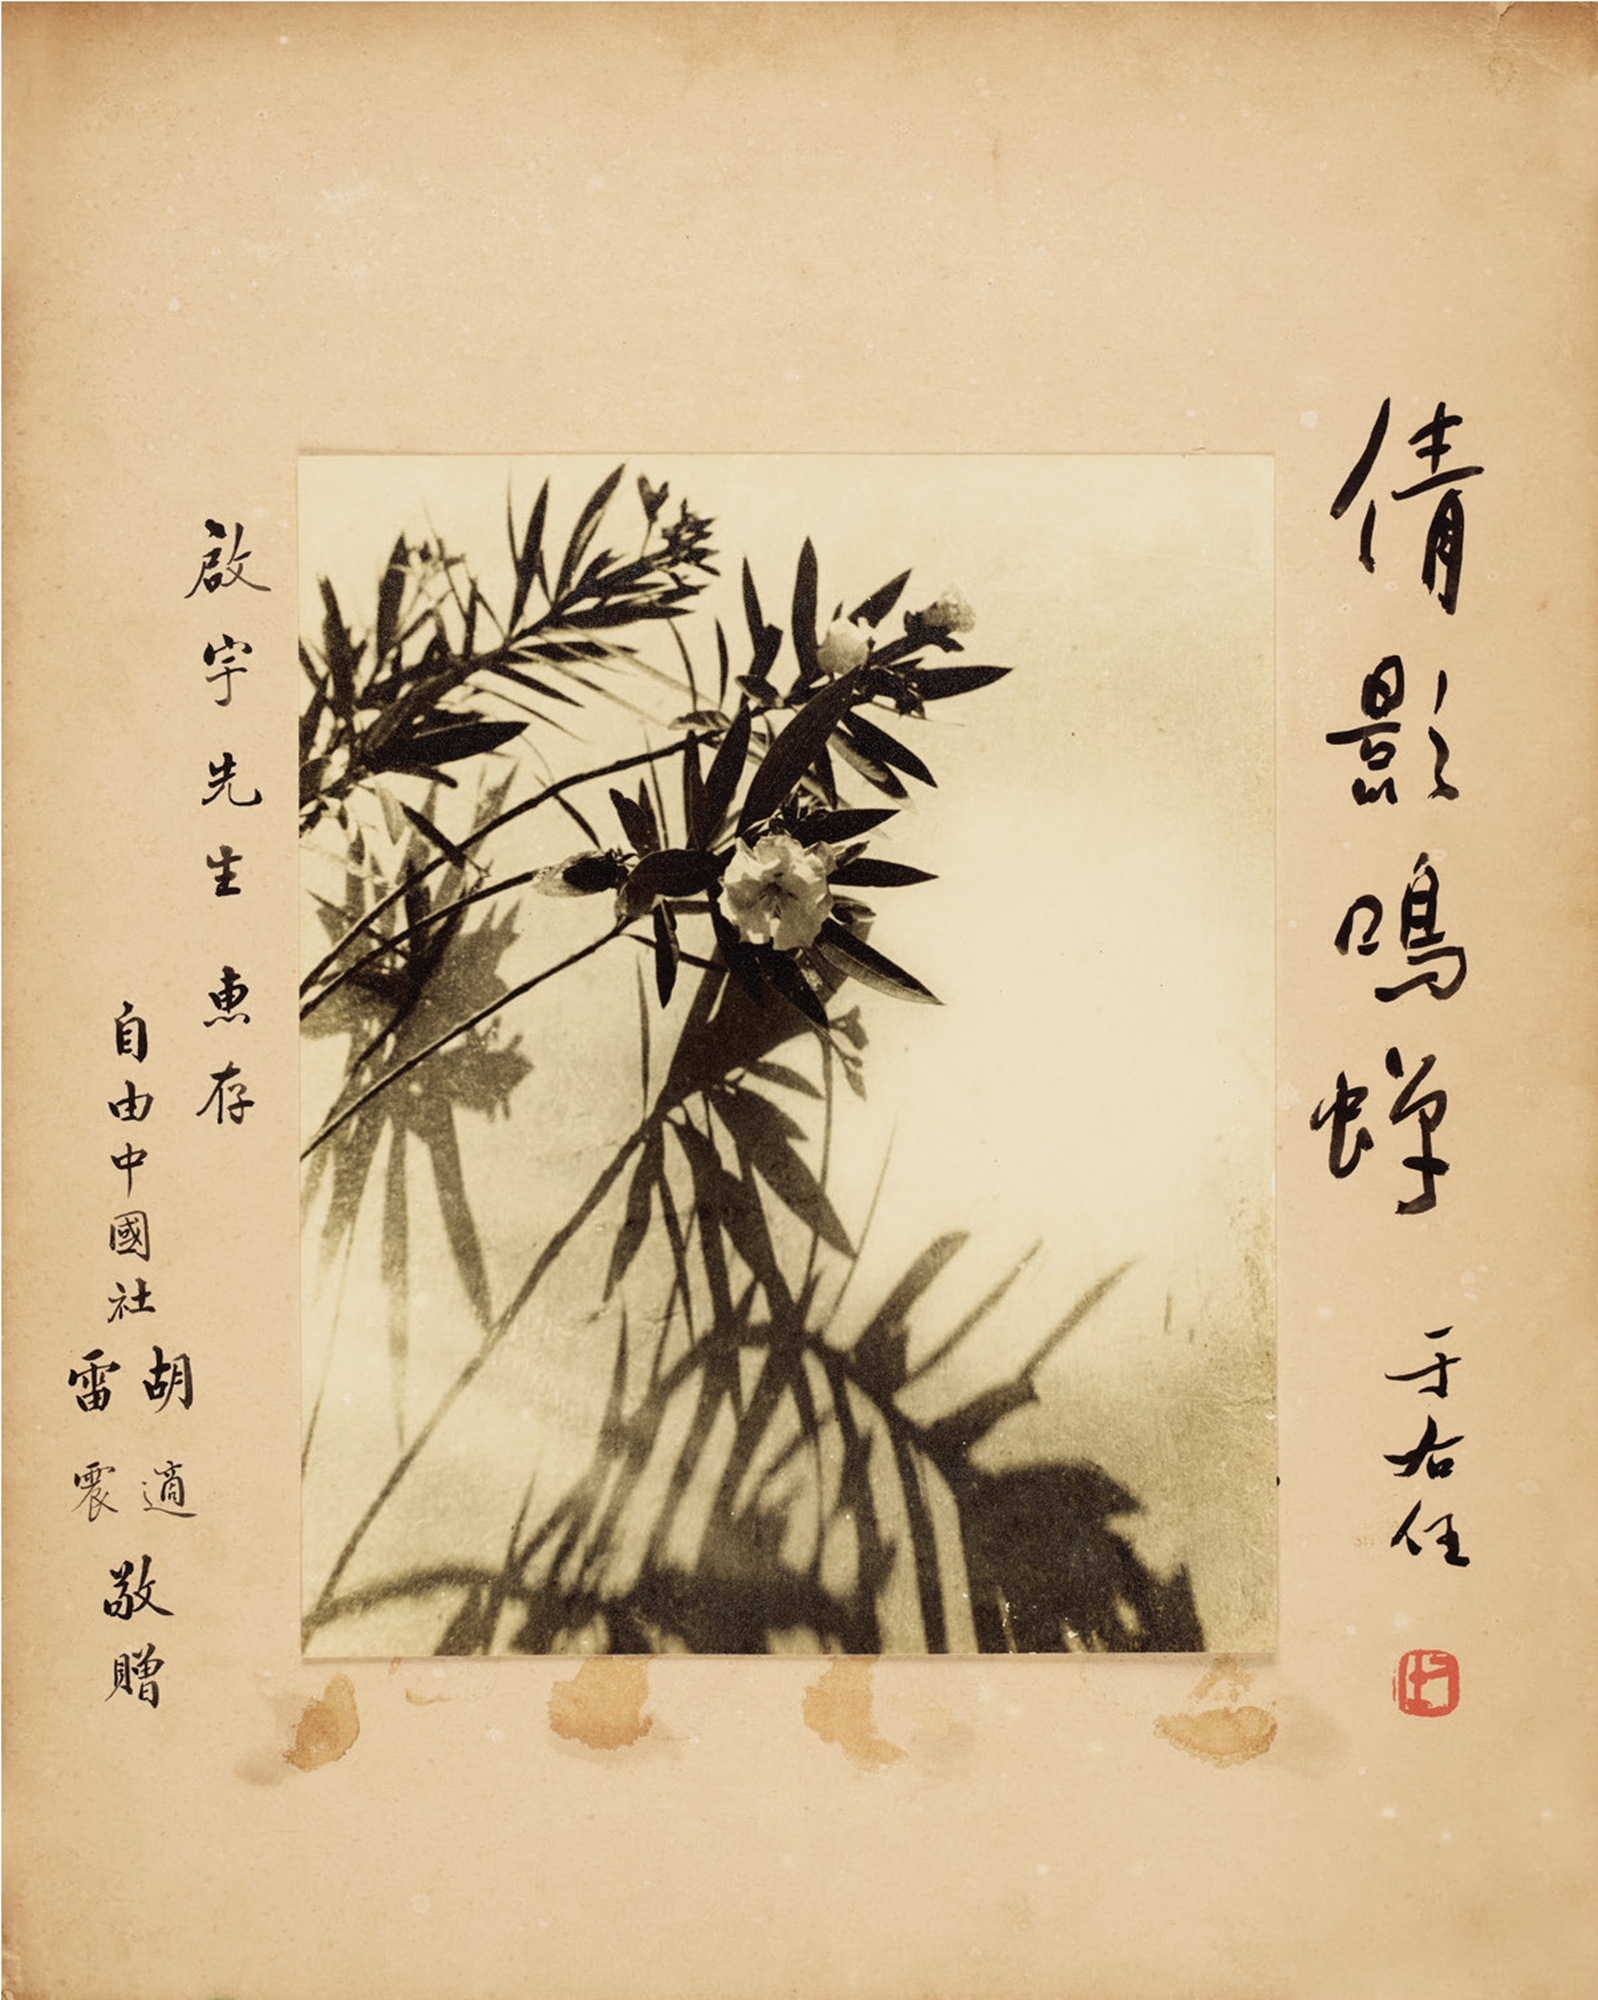 倩影鳴蟬
于右任
啟宇先生惠存
自由中國社
胡適
雷震
敬贈